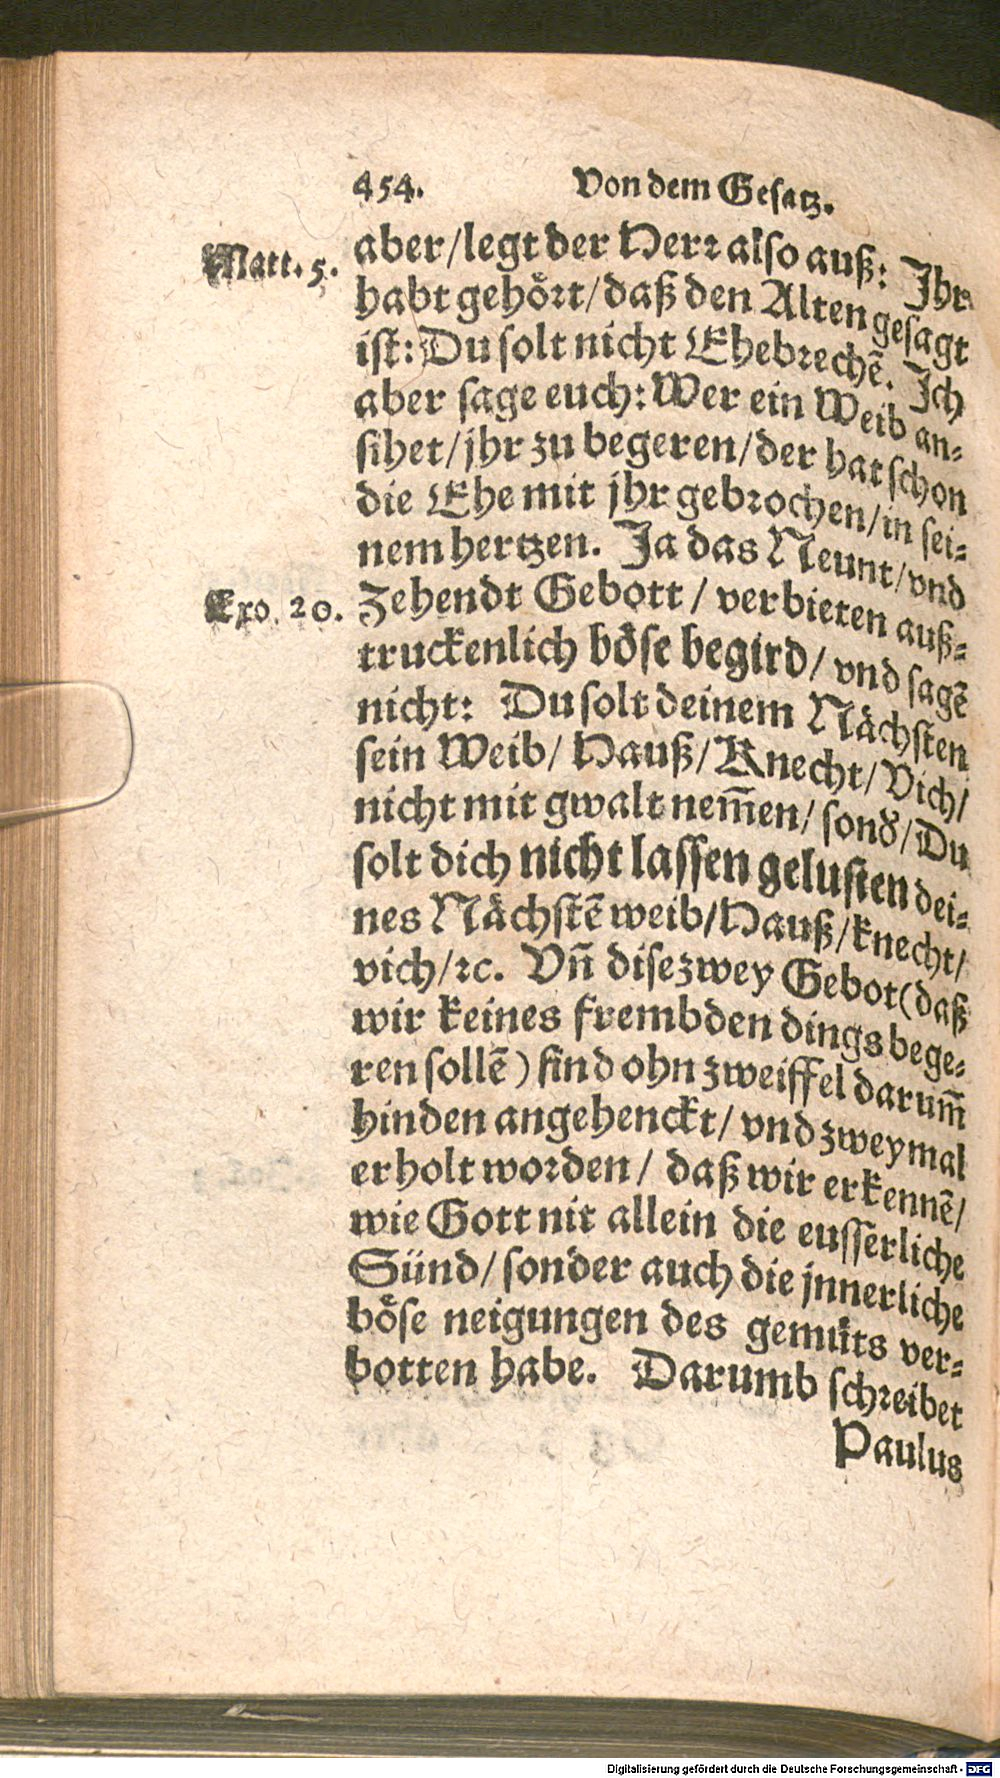 454. Von dem Gesatz.
Matt. 5.
aber/legt der Herr also auß: Ihr
habt gehört/daß den Alten gesagt
ist: Du solt nicht Ehebrechē. Ich
aber sage euch: Wer ein Weib an-
sihet/jhr zu begeren/der hat schon
die Ehe mit jhr gebrochen/in sei-
nem hertzen. Ja das Neunt/vnd
Exo. 20.
Zehendt Gebott/ verbieten auß-
truckenlich böse begird/ vnd sagē
nicht: Du solt deinem Nächsten
sein Weib/ Hauß/Knecht/Vich/
nicht mit gwalt nem̄en/ sond'/Du
solt dich nicht lassen gelusten dei-
nes Nächstē weib/Hauß/knecht/
vich/ꝛc. Vn̄ dise zwey Gebot(daß
wir keines frembden dings bege-
ren sollē) sind ohn zweiffel darum̄
hinden angehenckt/ vnd zweymal
erholt worden/ daß wir erkennē/
wie Gott nit allein die eusserliche
Sünd/sonder auch die jnnerliche
böse neigungen des gemüts ver-
botten habe. Darumb schreibet
Paulus
Digitalisierung gefördert durch die Deutsche Forschungsgemeinschaft - DFG